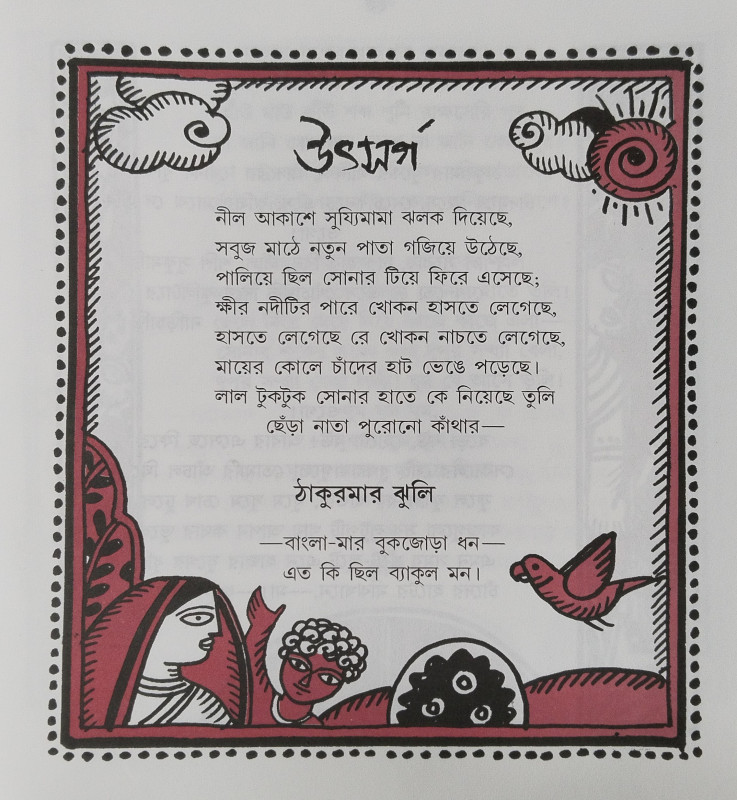 উৎসর্গ
নীল আকাশে সুয্যিমামা ঝলক দিয়েছে,
সবুজ মাঠে নতুন পাতা গজিয়ে উঠেছে,
পালিয়ে ছিল সোনার টিয়ে ফিরে এসেছে;
ক্ষীর নদীটির পারে খোকন হাসতে লেগেছে,
হাসতে লেগেছে রে খোকন নাচতে লেগেছে,
মায়ের কোলে চাঁদের হাট ভেঙে পড়েছে।
লাল টুকটুক সোনার হাতে কে নিয়েছে তুলি
ছেঁড়া নাতা পুরোনো কাঁথার—
ঠাকুরমার ঝুলি
—বাংলা-মার বুকজোড়া ধন—
এত কি ছিল ব্যাকুল মন।